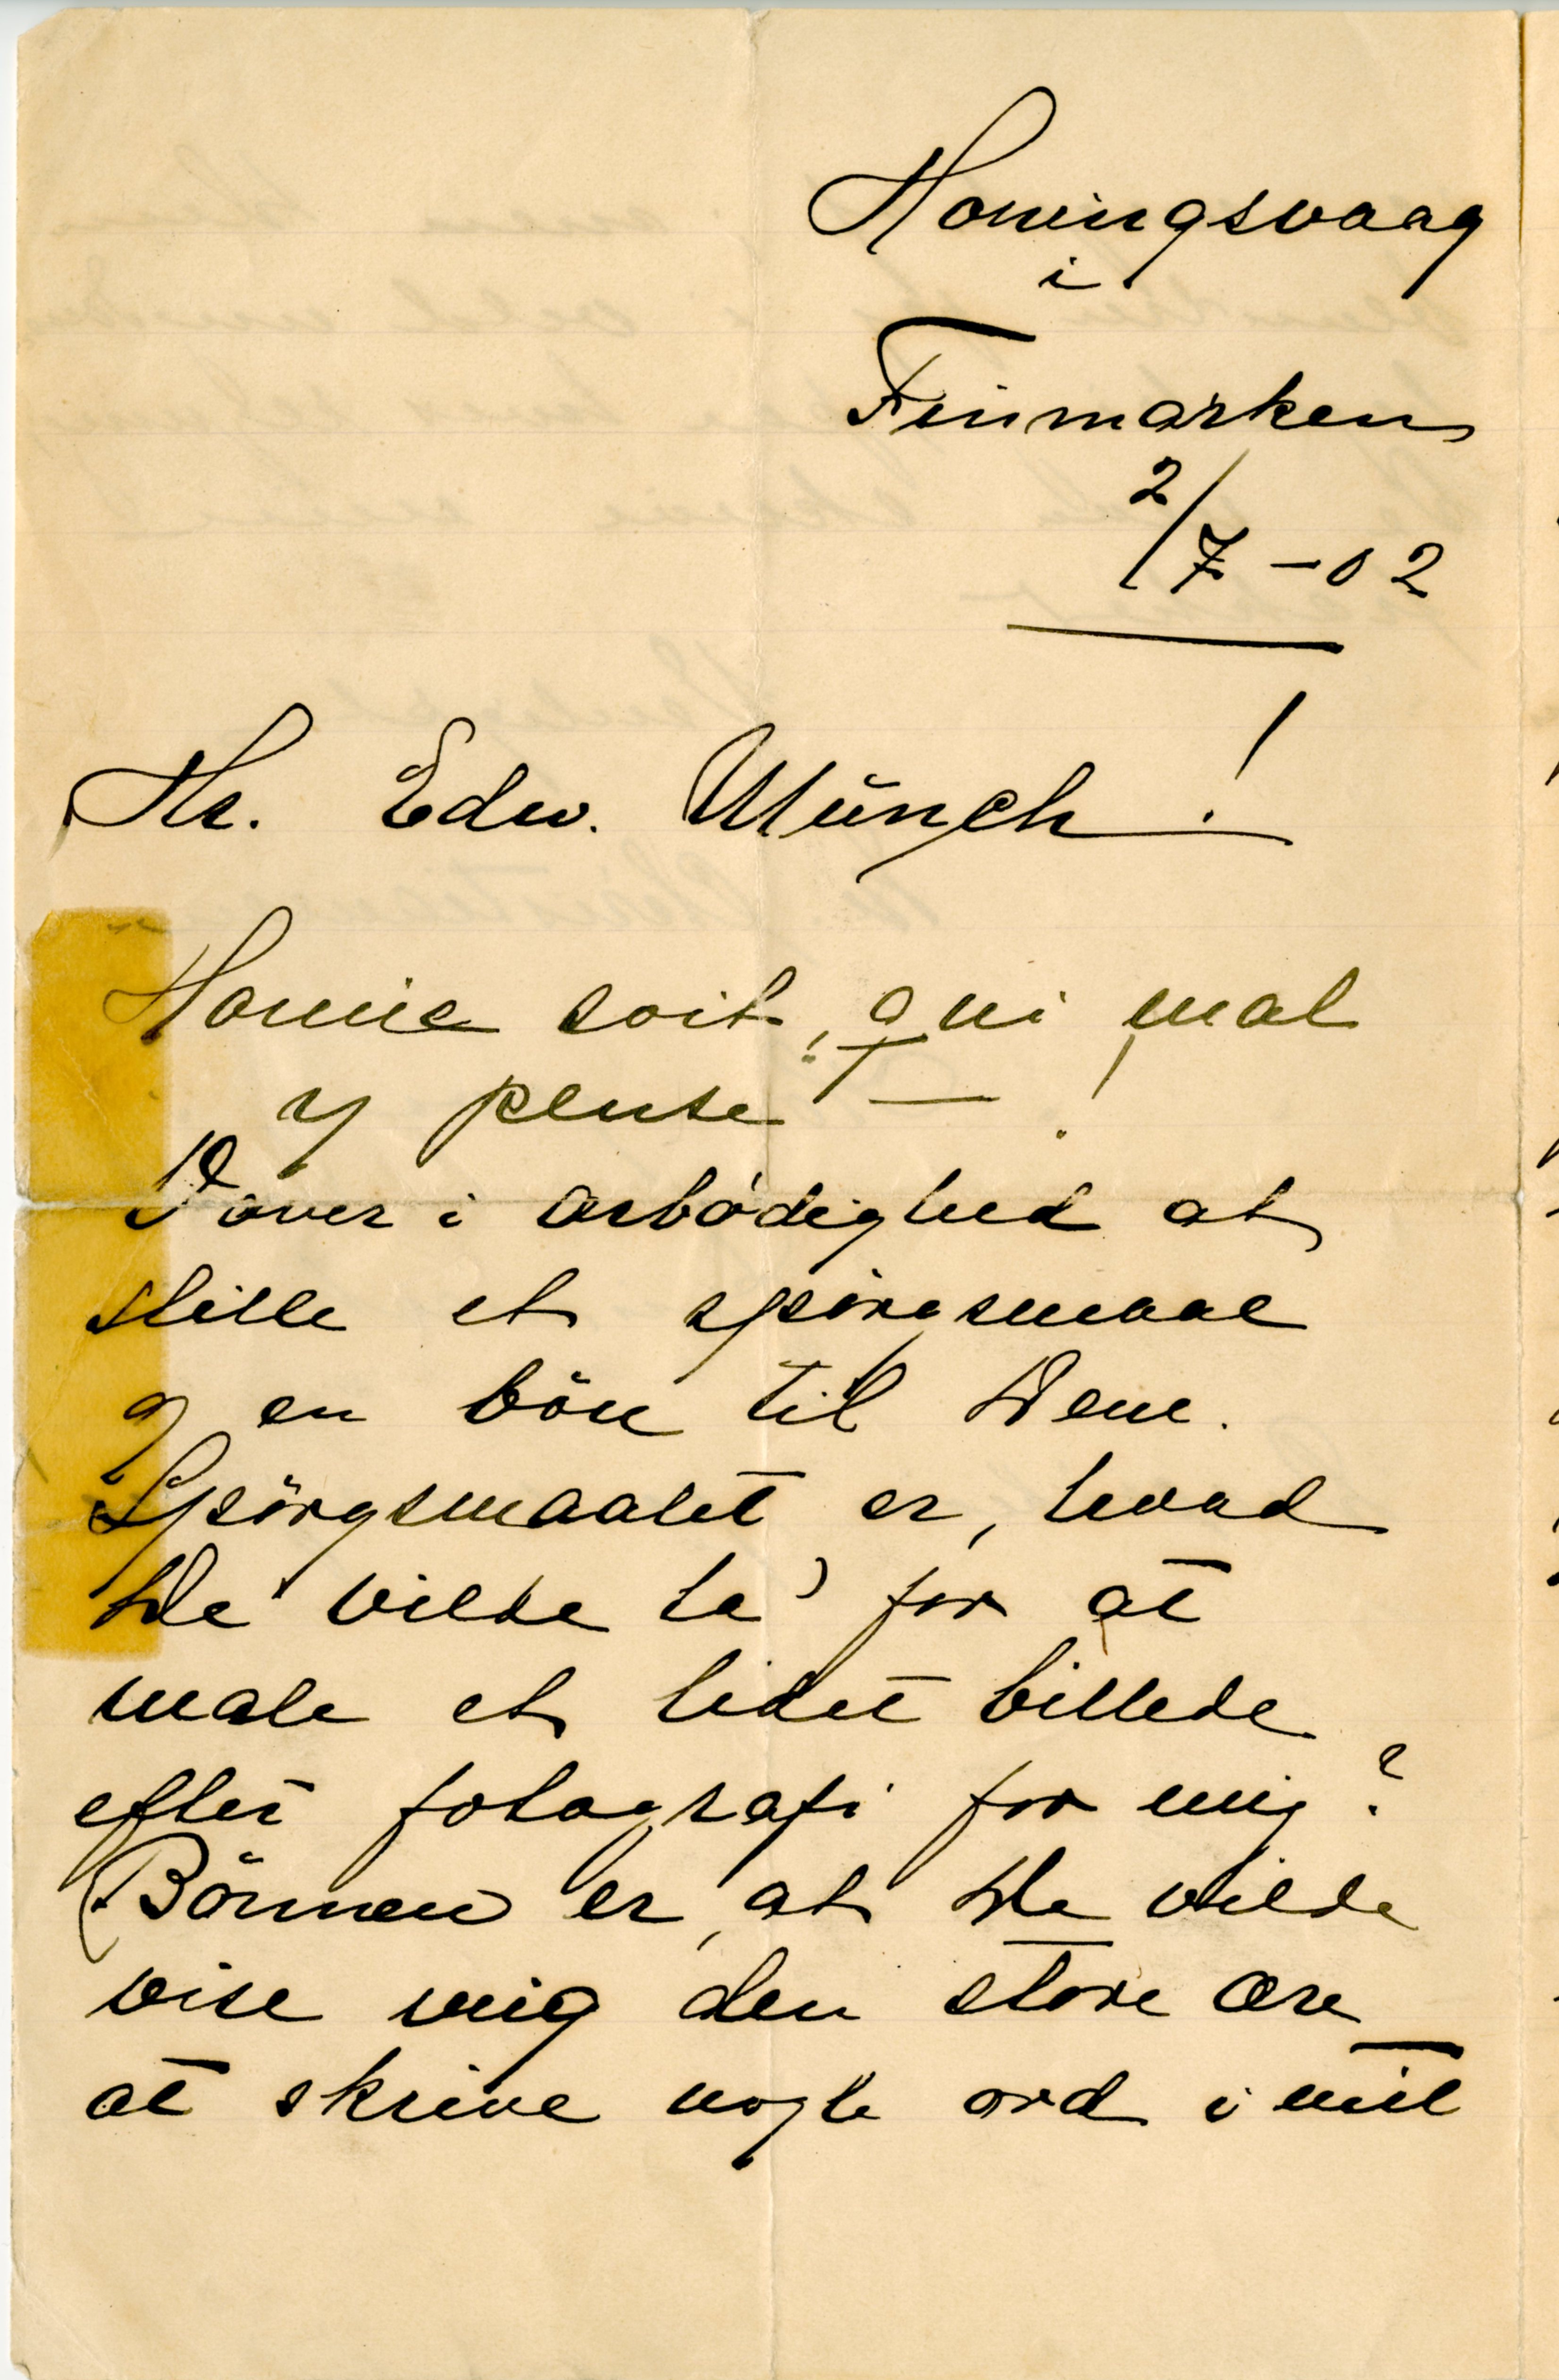 Honingsvaag
i
Finmarken
2/7 – 02
Hr. Edw. Münch!
Honnie soit, qui mal
y pense – !
Vover i ærbødighed at
stille et spörgsmaal
og en bön til Dem.
Spörgsmaalet er, hvad
De vilde ta' for at
male et lidet billede
efter fotografi for mig?
Bönnen er, at De vilde
vise mig den store ære
at skrive nogle ord i mit